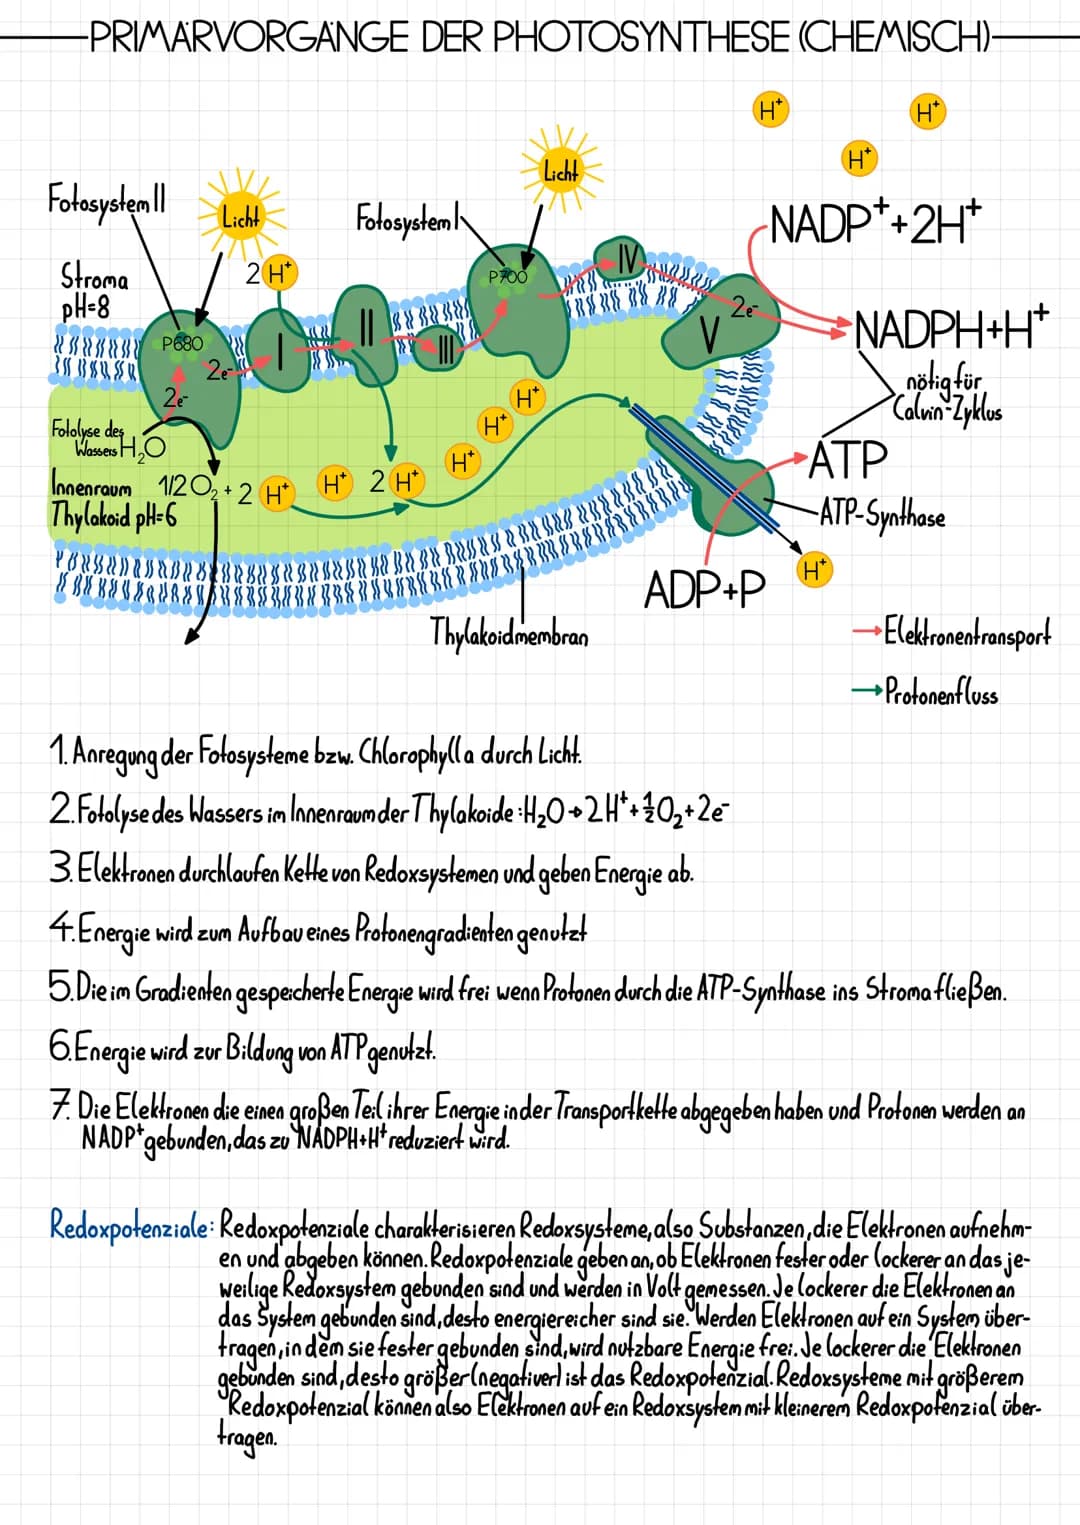 PRIMÄRVORGÄNGE DER PHOTOSYNTHESE (CHEMISCH)
H⁺
H⁺
H⁺
Licht
Fotosystem II
Licht
Fotosystem I
NADP⁺+2H⁺
2 H⁺
Stroma
pH=8
P700
IV
2e⁻
P680
I
II
III
V
NADPH+H⁺
2e⁻
2e⁻
nötig für
Calvin-Zyklus
H⁺
H⁺
Fotolyse des
Wassers H₂O
H⁺
ATP
Innenraum
Thylakoid pH=6
1/2 O₂ + 2 H⁺
H⁺
2 H⁺
ATP-Synthase
H⁺
ADP+P
Thylakoidmembran
→Elektronentransport
→Protonenfluss
1. Anregung der Fotosysteme bzw. Chlorophyll a durch Licht.
2. Fotolyse des Wassers im Innenraum der Thylakoide: H₂O → 2H⁺ + ½O₂ + 2e⁻
3. Elektronen durchlaufen Kette von Redoxsystemen und geben Energie ab.
4. Energie wird zum Aufbau eines Protonengradienten genutzt
5. Die im Gradienten gespeicherte Energie wird frei wenn Protonen durch die ATP-Synthase ins Stroma fließen.
6. Energie wird zur Bildung von ATP genutzt.
7. Die Elektronen die einen großen Teil ihrer Energie in der Transportkette abgegeben haben und Protonen werden an
NADP⁺ gebunden, das zu NADPH+H⁺ reduziert wird.
Redoxpotenziale: Redoxpotenziale charakterisieren Redoxsysteme, also Substanzen, die Elektronen aufnehm-
en und abgeben können. Redoxpotenziale geben an, ob Elektronen fester oder lockerer an das je-
weilige Redoxsystem gebunden sind und werden in Volt gemessen. Je lockerer die Elektronen an
das System gebunden sind, desto energiereicher sind sie. Werden Elektronen auf ein System über-
tragen, in dem sie fester gebunden sind, wird nutzbare Energie frei. Je lockerer die Elektronen
gebunden sind, desto größer (negativer) ist das Redoxpotenzial. Redoxsysteme mit größerem
Redoxpotenzial können also Elektronen auf ein Redoxsystem mit kleinerem Redoxpotenzial über-
tragen.